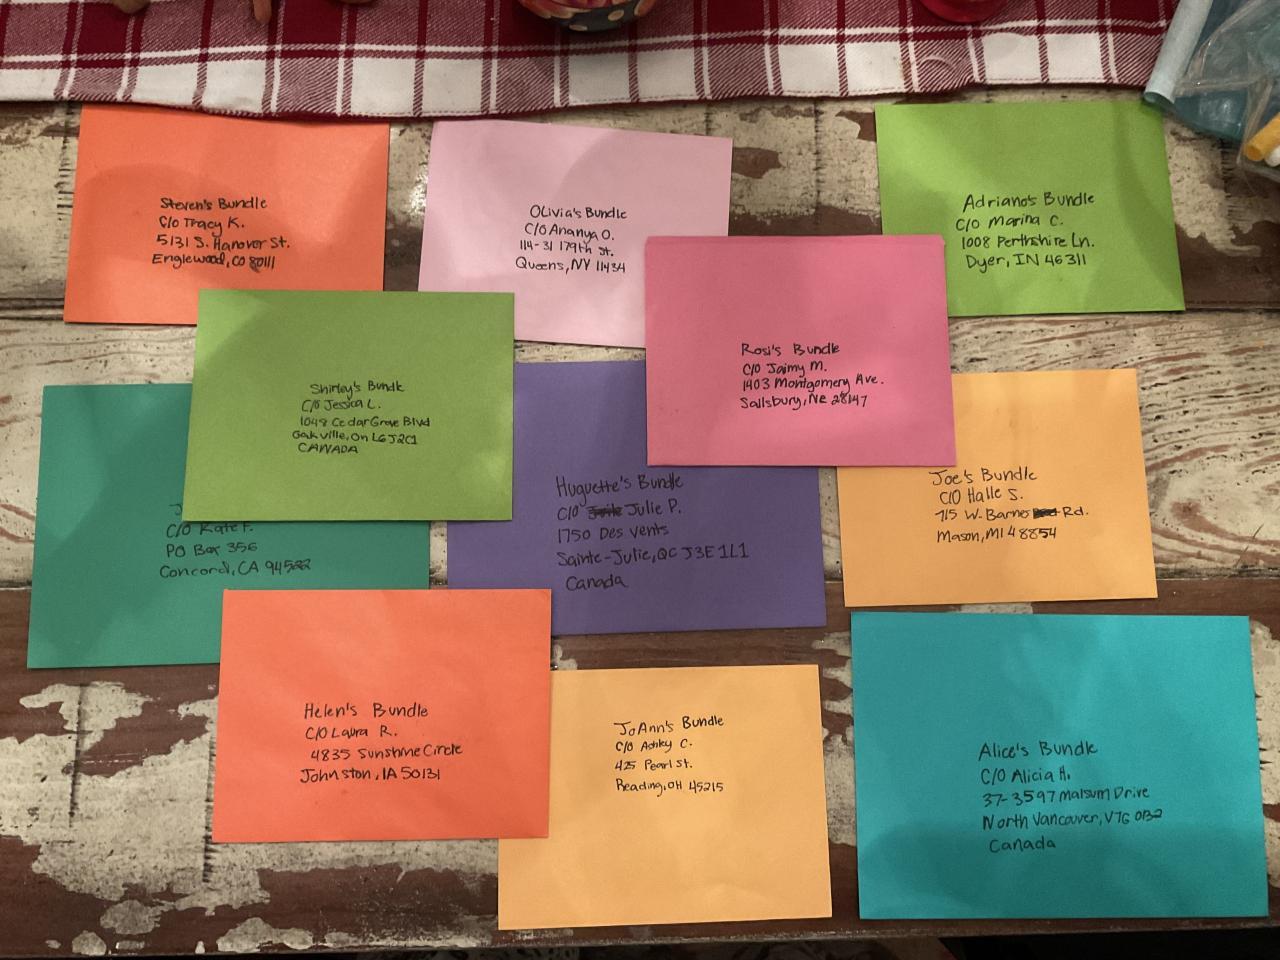 Steven's Bundle
C/o Tracy K.
5131 S. Hanover St.
Englewood, CO 80111
Olivia's Bundle
C/O Ananya O.
114-31 179th St.
Queens, NY 11434
Adriano's Bundle
C/O Marina C.
1008 Perthshire Ln.
Dyer, IN 46311
Shirley's Bundle
C/O Jessica L.
1048 Cedar Grove Blvd
Oakville, On L6J2C1
CANADA
Rosi's Bundle
C/O Jaimy M.
1403 Montgomery Ave.
Sallsbury, NE 28147
C/O Kate F.
PO Box 356
Concord, CA 94522
Huguette's Bundle
C/O Julie P.
1750 Des vents
Sainte-Julie, QC J3E 1L1
Canada
Joe's Bundle
C/O Halle S.
715 W. Barnes Rd.
Mason, MI 48854
Helen's Bundle
C/O Laura R.
4835 Sunshine Circle
Johnston, IA 50131
JoAnn's Bundle
C/O Ashley C.
425 Pearl St.
Reading, OH 45215
Alice's Bundle
C/O Alicia H.
37-3597 Malsum Drive
North Vancouver, V7G 0B2
Canada